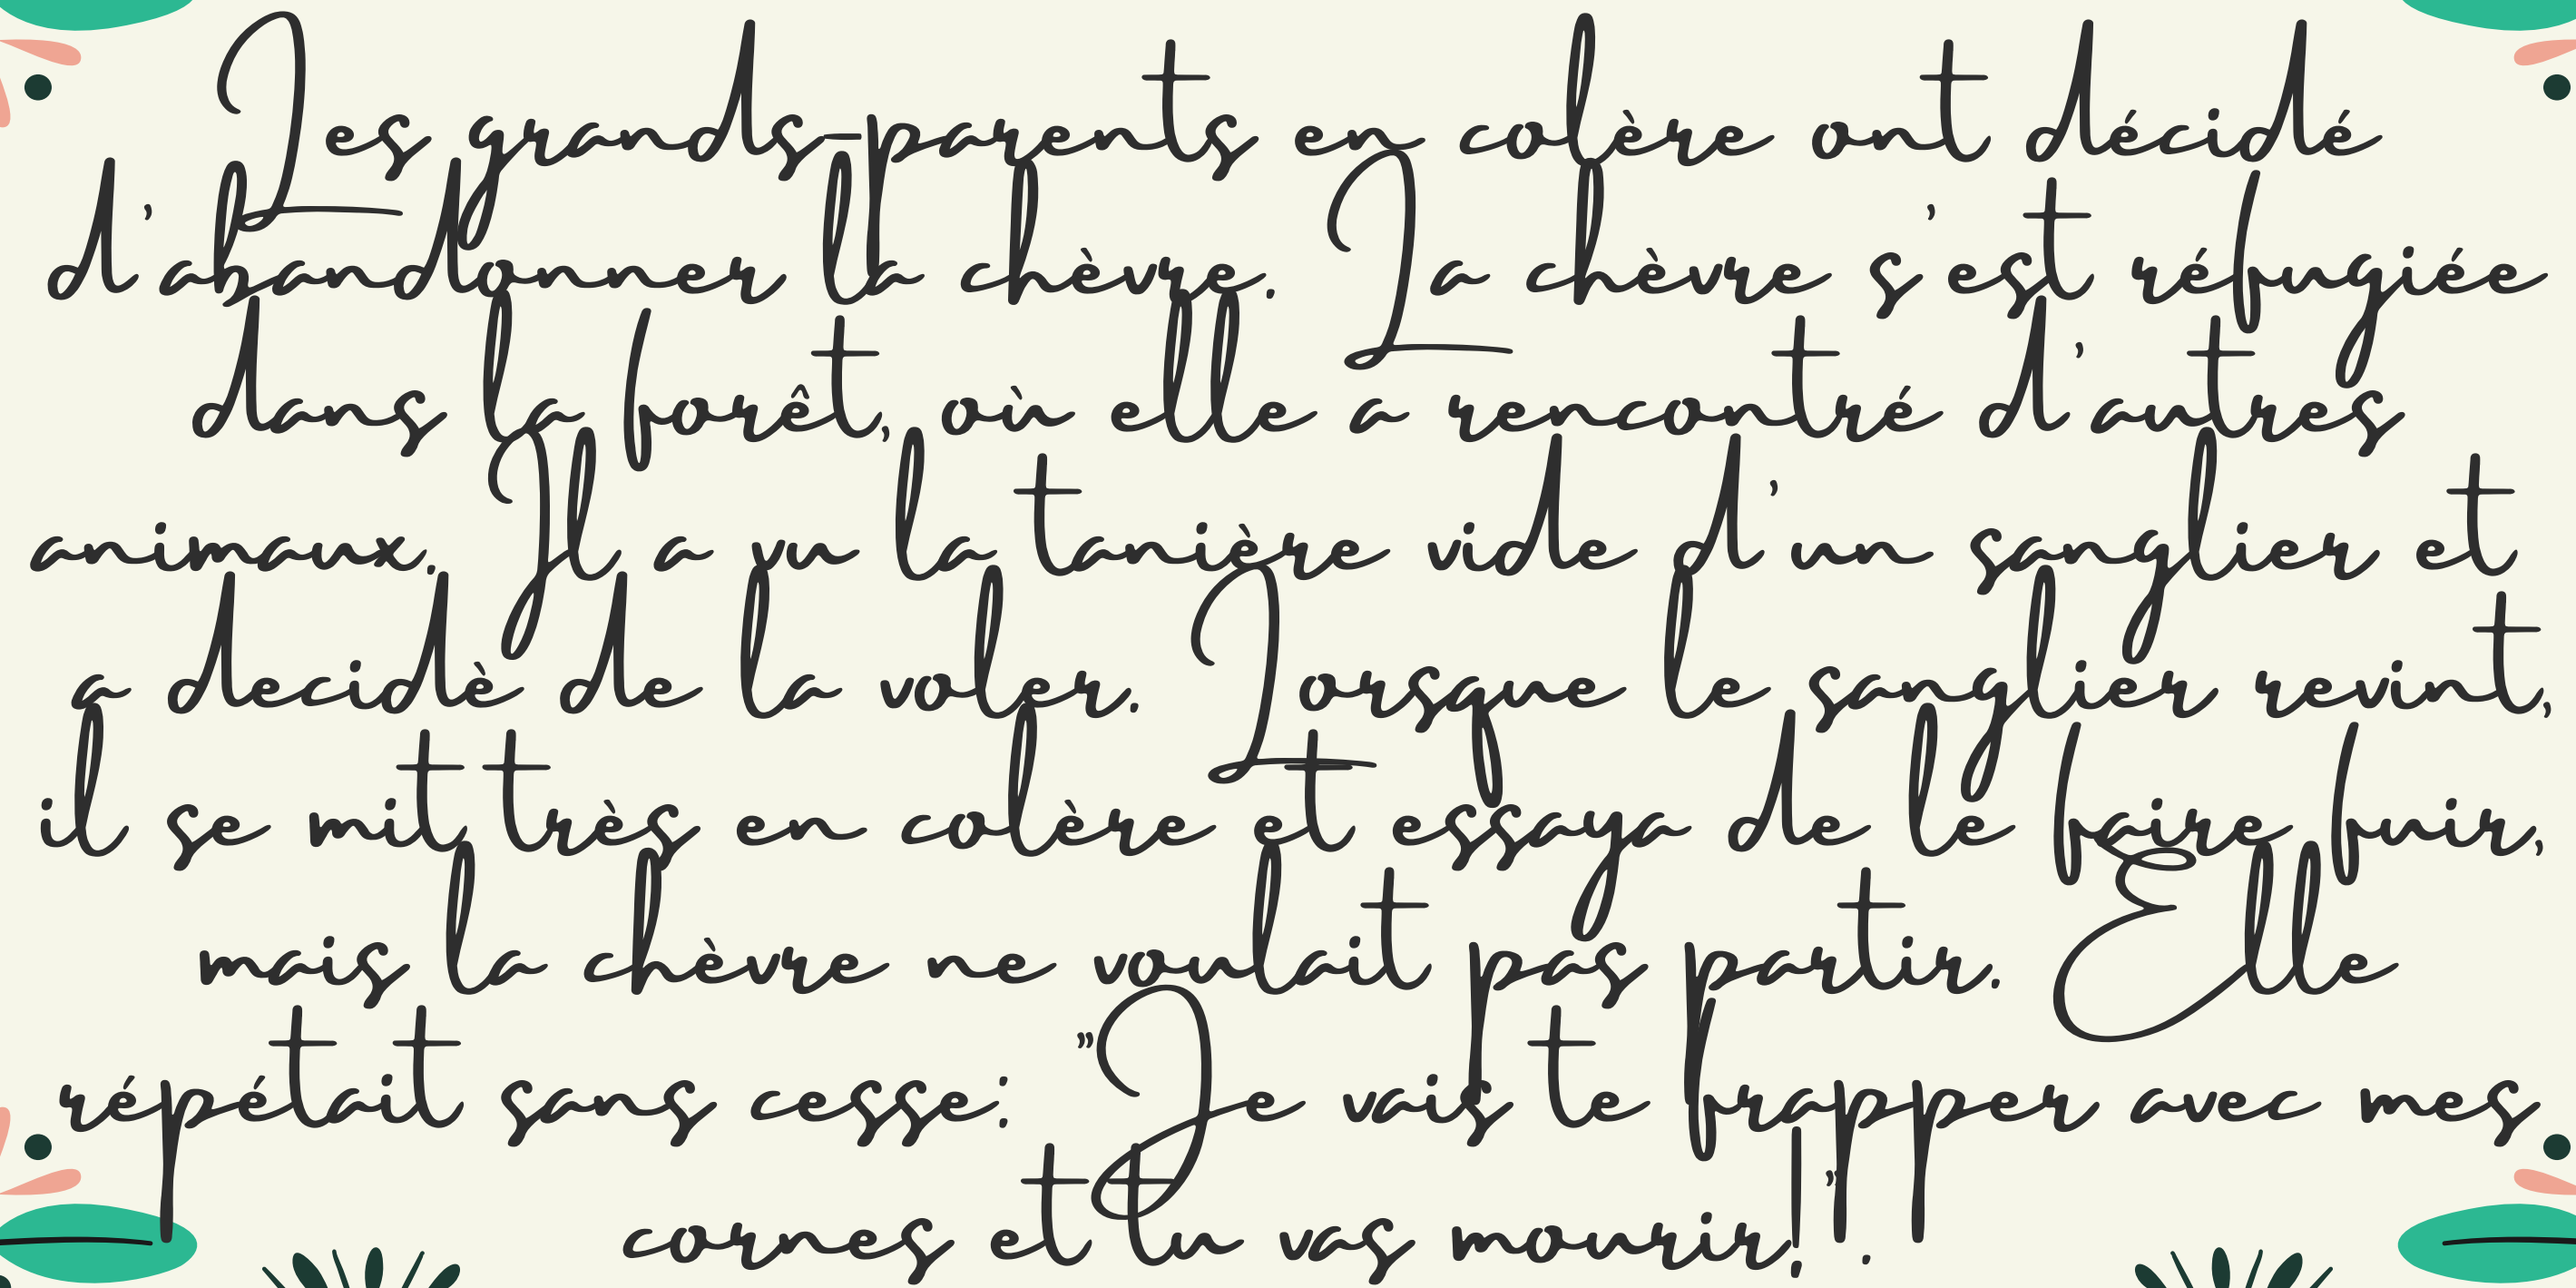 Les grands-parents en colère ont décidé
d'abandonner la chèvre. La chèvre s'est réfugiée
dans la forêt, où elle a rencontré d'autres
animaux. Il a vu la tanière vide d'un sanglier et
a decidè de la voler. Lorsque le sanglier revint,
il se mit très en colère et essaya de le faire fuir,
mais la chèvre ne voulait pas partir. Elle
répétait sans cesse: "Je vais te frapper avec mes
cornes et tu vas mourir!".